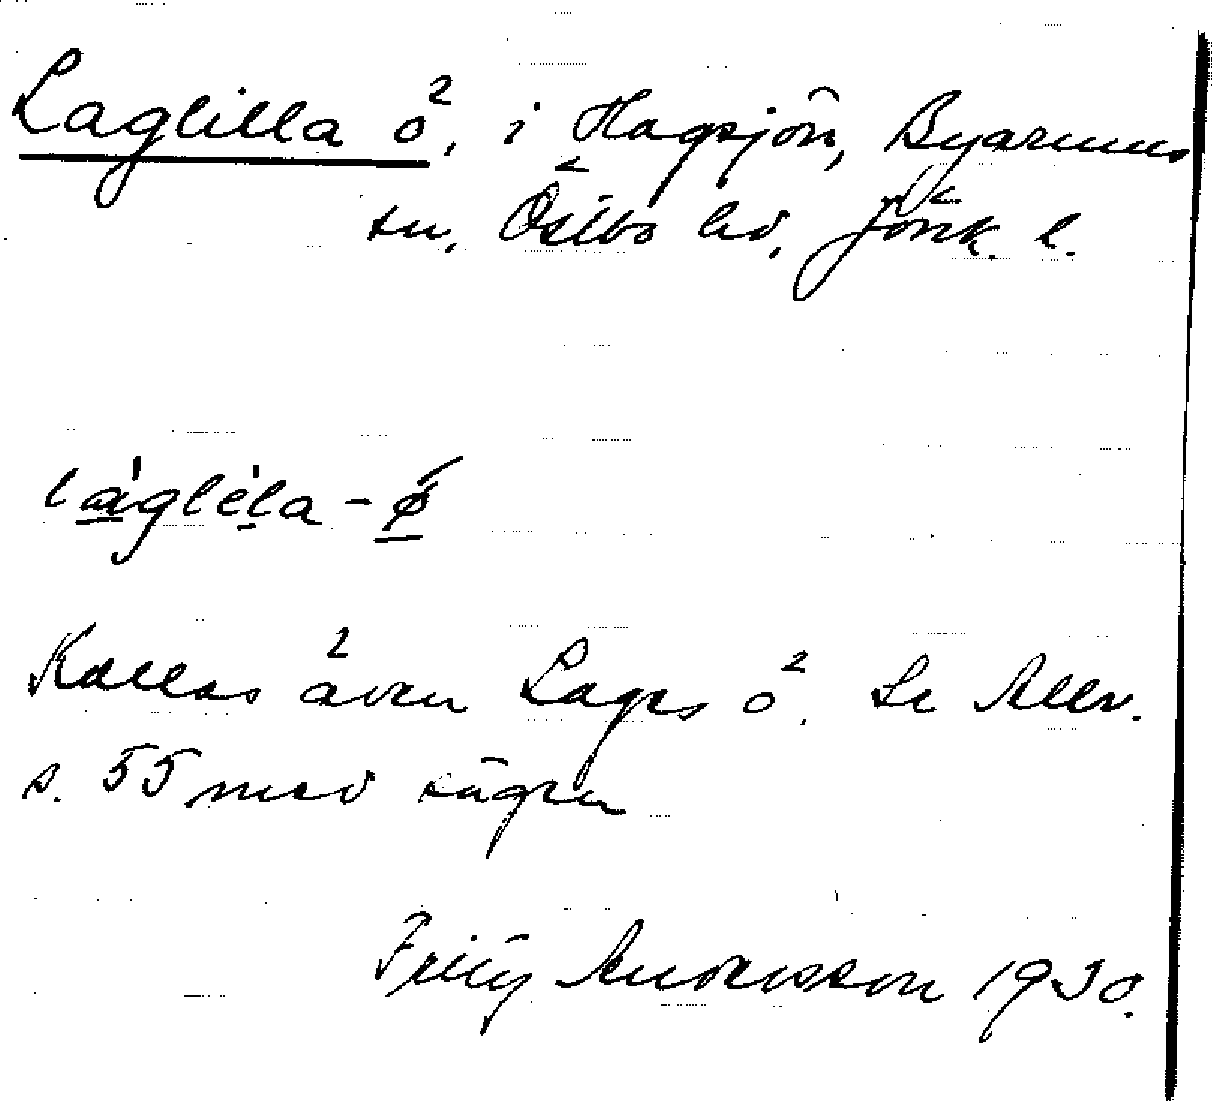 Laglilla ö, i Hagsjön, Byarums
sn, Östbo hd, Jönk. l.
Kallas även Lages ö. Se Allv.
s. 55 med sägen
Fritz Andersson 1930.